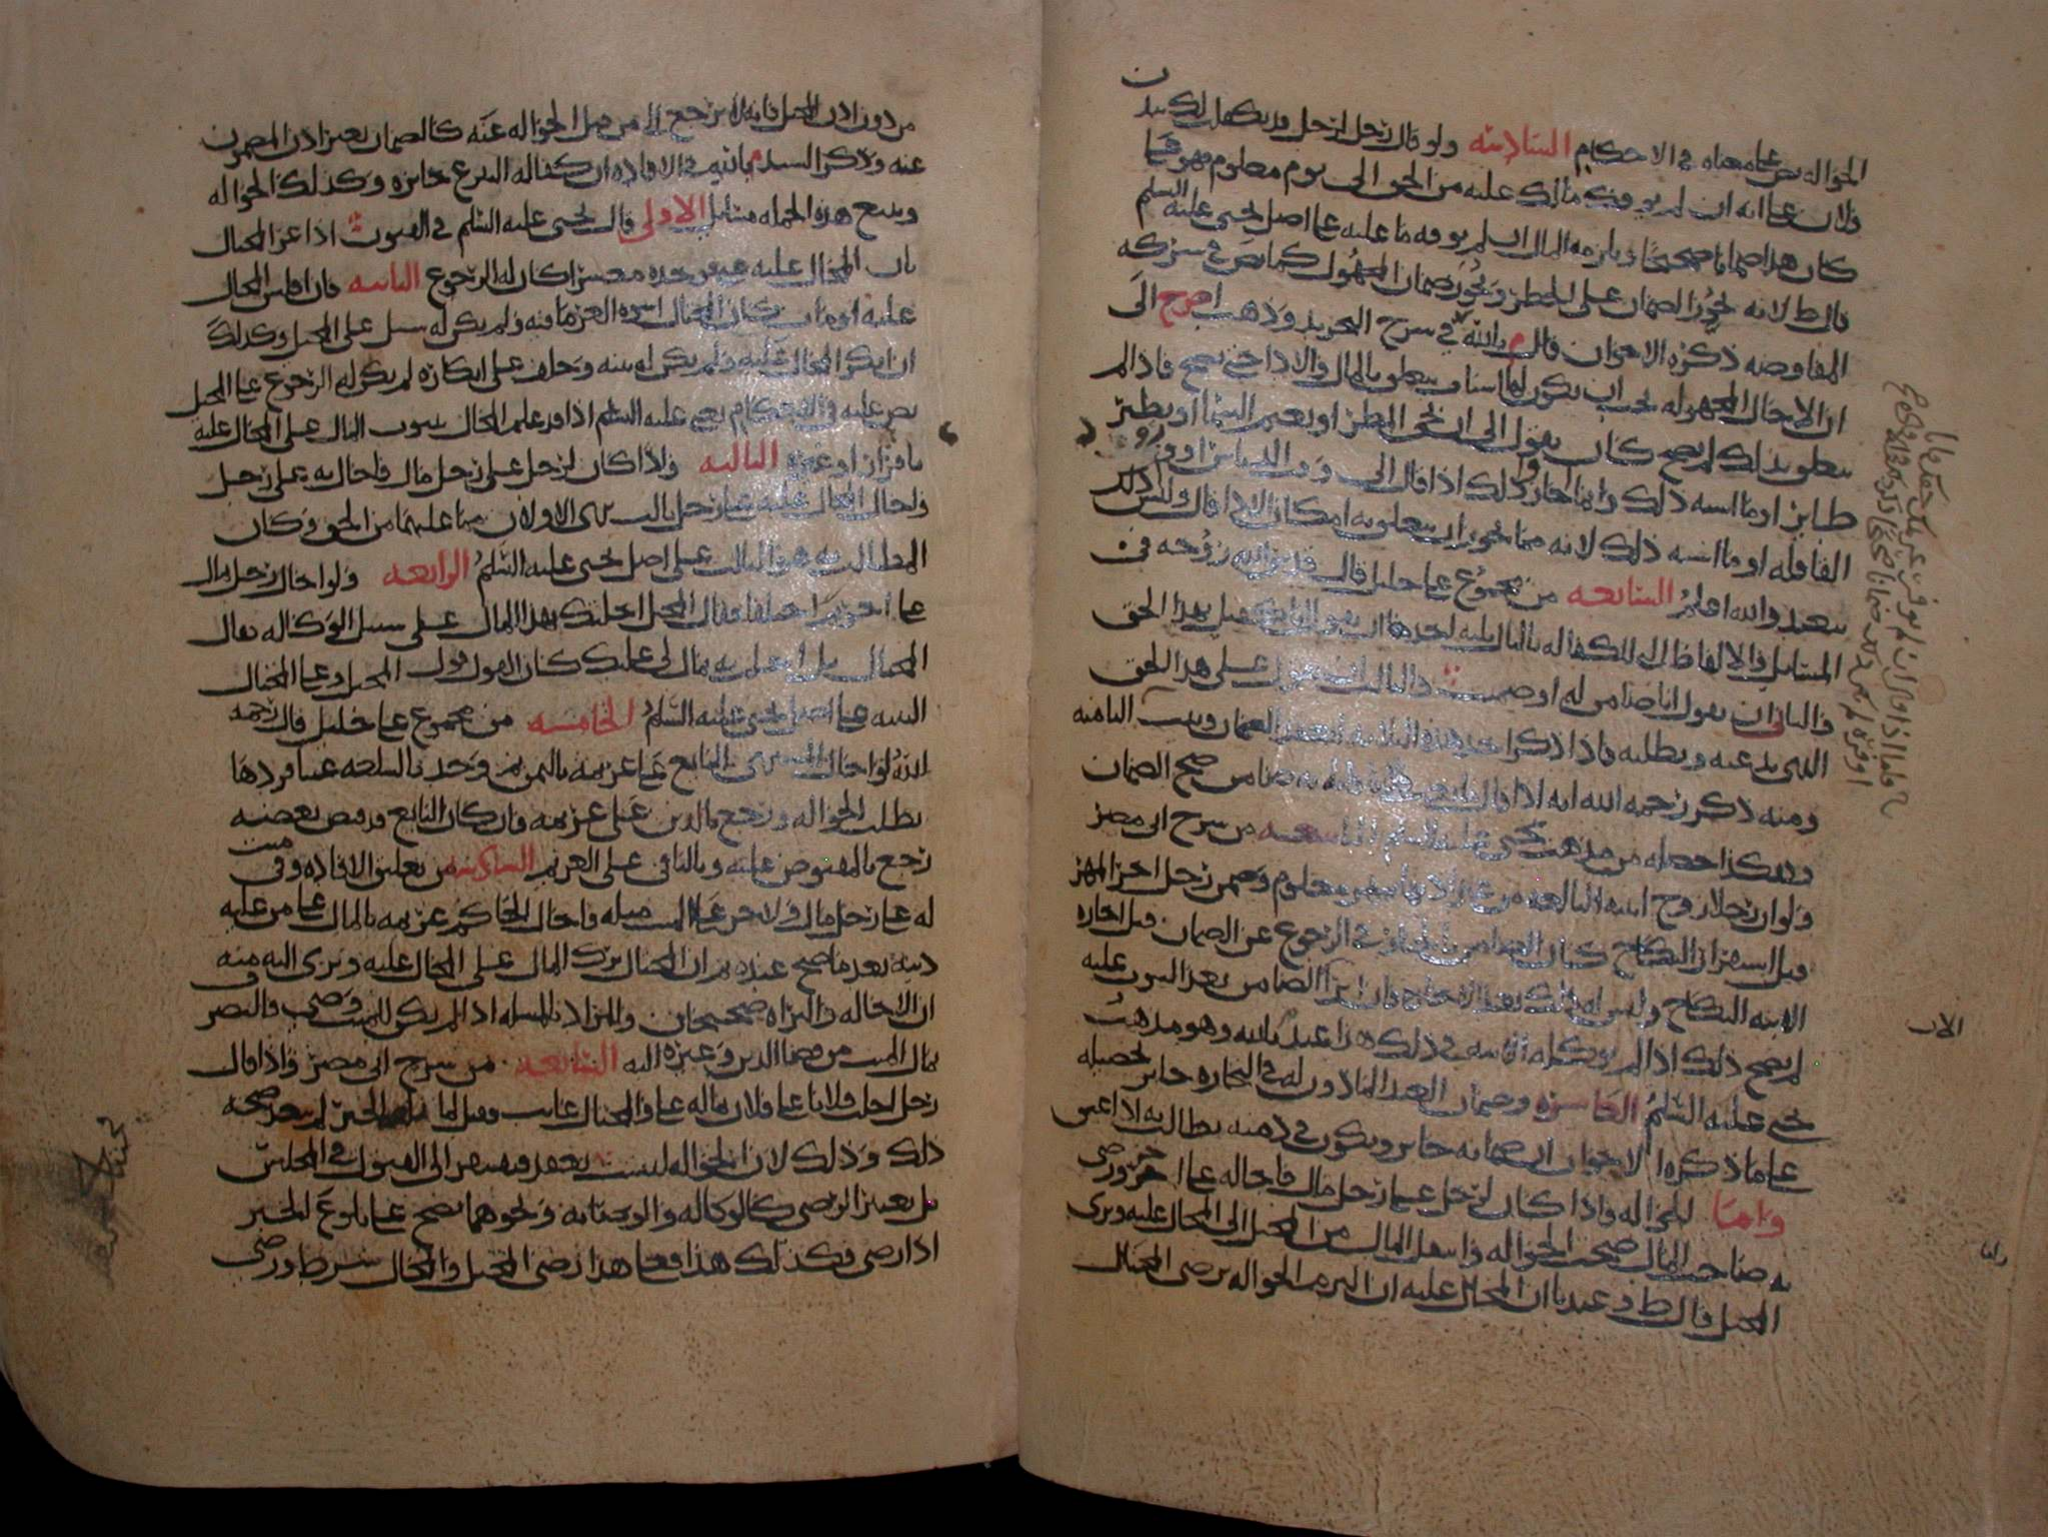 الحواله نص على معناه في الاحكام السادسه ولو قال رجل لرجل قد تكفل لك بيدن
فلان على انه ان لم يوفك مالك عليه من الحق الى يوم معلوم فهو عليا
كان هذا ضمانا صحيحا ويلزمه المال ان لم يوفه ما عليه على اصل يحيى عليه السلم
قال ط لانه يجوز الضمان على الخطر ويجوز ضمان المجهول كما نص في شركه
المفاوضه ذكره الاخوان قال م بالله في شرح التجريد وذهب اصح الى
ان الاجال المجهوله يجب ان يكون لها تعلق بالمال والاداء حتى يصح فاذا لم
يتعلق بذلك لم يصح كان يقول الى ان يجي المطر او تغيم السماء او يطير
طاير او ما اشبه ذلك وانما جاز ذلك اذا قال الى وقت الدياس او قدوم
القافله او ما اشبه ذلك لانه مما يجوز ان يتعلق به امكان الاداء قال وليس ذلك
ببعيد والله اعلم السابعه من مجموع علي خليل قال قدس الله روحه في
المسايل والالفاظ التي للكفاله بالمال ثلثه احدها ان يقول انا كفيل بهذا الحق
والثاني ان يقول انا ضامن له او ضمنت والثالث ان يقول علي هذا الحق
الذي تدعيه وتطلبه فاذا ذكر احد هذه الثلاثه انعقد الضمان وثبت الثامنه
ومنه ذكر رحمه الله انه اذا قال ضامن صح الضمان
وهكذا حصله من مذهب يحيى عليه السلم التاسعه من شرح ابي مضر
ولو ان رجلا زوج ابنته البالغه من غير اذنها بمهر معلوم وضمن رجل اخر المهر
قبل استقرار النكاح كان الضامن بالخيار في الرجوع عن الضمان قبل اجازه
الابنه النكاح وليس له ذلك بعد الاجازه فان ابرا الضامن بعد الثبوت عليه
لم يصح ذلك اذا لم يوكله الابنه في ذلك هذا عند م بالله وهو مذهب
يحيى عليه السلم العاشره وضمان العبد الماذون له في التجاره جايز تحصيله
على ما ذكره الاخوان ان ضمانه جايز ويكون في ذمته يطالب به اذا عتق
واما الحواله فاذا كان لرجل على رجل مال فاحاله على اخر ورضي
به صاحب المال صحت الحواله وانتقل المال من المحيل الى المحال عليه وبرى
المحيل قال ط وعندنا ان المحال عليه ان التزم الحواله برضى المحتال
الاب
واما
من دون اذن المحيل فانه لا يرجع الى من قبل الحواله عنه كالضمان بغير اذن المضمون
عنه وذكر السيد م بالله في الافاده ان كفاله التبرع جايزه وكذلك الحواله
ويتبع هذه الجمله مسايل الاولى قال يحيى عليه السلم في الفنون اذا غر المحتال
بان المحال عليه غني فوجده معسرا كان له الرجوع الثانيه فان افلس المحال
عليه او مات كان المحتال اسوه الغرماء فيه ولم يكن له سبيل على المحيل وكذلك
ان انكر المحال عليه ولم يكن له بينه وحلف على انكاره لم يكن له الرجوع على المحيل
نص عليه في الاحكام يعني عليه السلم اذا قد علم المحال ثبوت المال على المحال عليه
باقرار او غيره الثالثه واذا كان لرجل على رجل مال فاحال به على رجل
واحال المحال عليه على رجل ثالث برى الاولان مما عليهما من الحق وكان
المطالب به هو الثالث على اصل يحيى عليه السلم الرابعه ولو احال رجل مال
على اخر ثم اختلفا فقال المحيل احلتك بهذا المال على سبيل الوكاله فقال
المحتال بل احلتني به بمال لي عليك كان القول قول المحيل وعلى المحتال
البينه على اصل يحيى عليه السلم الخامسه من مجموع علي خليل قال رحمه
الله لو احال المشتري البايع على غريمه بالثمن ثم وجد بالسلعه عيبا فردها
بطلت الحواله ورجع بالدين على غريمه وان كان البايع قد قبض بعضه
رجع بالمقبوض عليه وبالباقي على الغريم السادسه من تعليق الافاده وفي ميت
له على رجل مال ولاخر على الميت مثله فاحال الحاكم غريمه بالمال على من عليه
دينه بعد ما صح عنده ثم ان المحتال ترك المال على المحال عليه وبرى اليه منه
ان الاحاله والبراه صحيحان والمراد بالمسله اذا لم يكن للميت وصي والتصرف
بمال الميت من قضاء الدين وغيره اليه السابعه من شرح ابي مضر واذا قال
رجل احلت فلانا على فلان بماله علي والمحتال غايب وقبل لما بلغه الخبر لم يبعد صحه
ذلك وذلك لان الحواله ليست بعقد فيفتقر الى القبول في المجلس
بل يعتبر الرضى كالوكاله والوصايه ونحوهما يصح على بلوغ الخبر
اذا رضي فكذلك هذا فعلى هذا رضى المحيل والمحال شرط ورضى